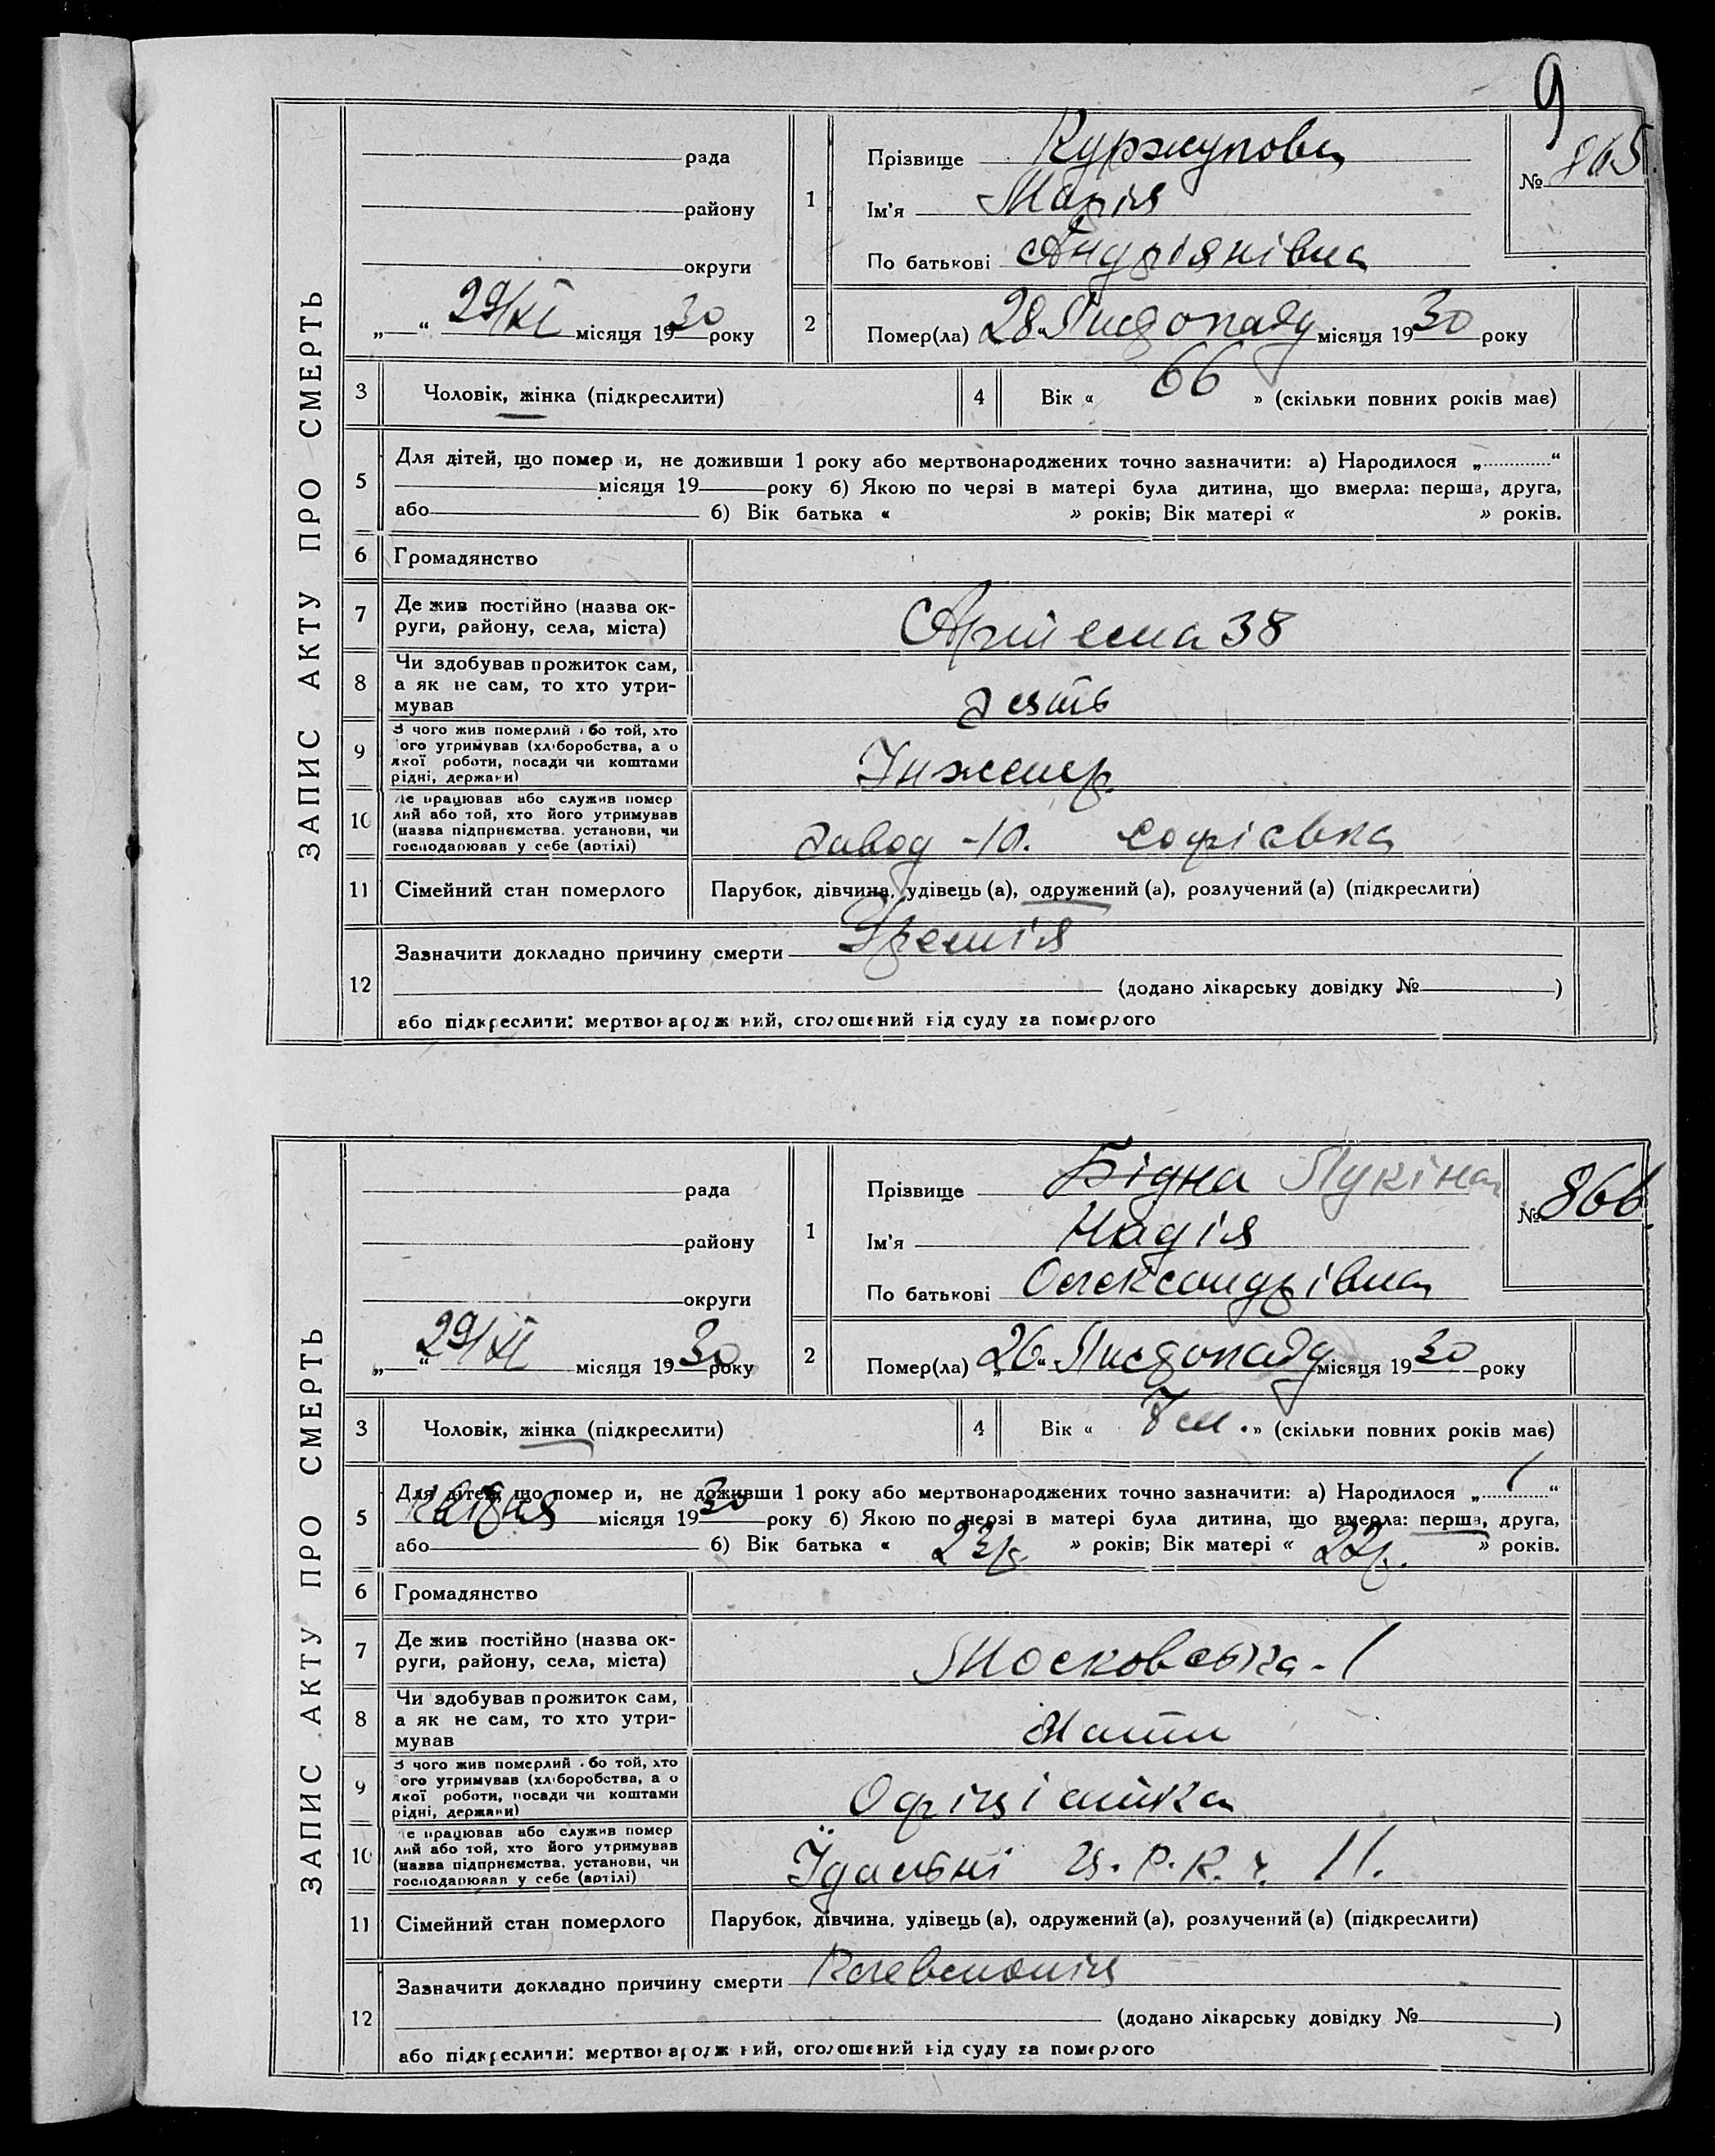 9
ЗАПИС АКТУ ПРО СМЕРТЬ
рада
району
округи
„ “ 29/XI місяця 1930 року
1
Прізвище Куржупова
Ім'я Марія
По батькові Андріянівна
№ 865.
2
Помер(ла) 28 Листопаду місяця 1930 року
3
Чоловік, жінка (підкреслити)
4
Вік « 66 » (скільки повних років має)
5
Для дітей, що помер и, не доживши 1 року або мертвонароджених точно зазначити: а) Народилося „ “
місяця 19 року б) Якою по черзі в матері була дитина, що вмерла: перша, друга,
або б) Вік батька « » років; Вік матері « » років.
6
Громадянство
7
Де жив постійно (назва ок-
руги, району, села, міста)
Артема 38
8
Чи здобував прожиток сам,
а як не сам, то хто утри-
мував
Зять
9
З чого жив померлий або той, хто
його утримував (хліборобства, а о
якої роботи, посади чи коштами
рідні, держави)
Інженер
10
Де працював або служив помер
лий або той, хто його утримував
(назва підприємства, установи, чи
господарював у себе (артілі)
Завод -10. Софіевка
11
Сімейний стан померлого
Парубок, дівчина, удівець (а), одружений (а), розлучений (а) (підкреслити)
12
Зазначити докладно причину смерти Уремія
(додано лікарську довідку № )
або підкреслити: мертвонароджений, оголошений від суду за померлого
ЗАПИС АКТУ ПРО СМЕРТЬ
рада
району
округи
„ “ 29/XI місяця 1930 року
1
Прізвище Бідна Лукіна
Ім'я Надія
По батькові Олександрівна
№ 866.
2
Помер(ла) „26“ Листопаду місяця 1930 року
3
Чоловік, жінка (підкреслити)
4
Вік « 7 м. » (скільки повних років має)
5
Для дітей, що помер и, не доживши 1 року або мертвонароджених точно зазначити: а) Народилося „ 1 “
Квітня місяця 1930 року б) Якою по черзі в матері була дитина, що вмерла: перша, друга,
або б) Вік батька « 23р. » років; Вік матері « 22р. » років.
6
Громадянство
7
Де жив постійно (назва ок-
руги, району, села, міста)
Московська - 1
8
Чи здобував прожиток сам,
а як не сам, то хто утри-
мував
Мати
9
З чого жив померлий або той, хто
його утримував (хліборобства, а о
якої роботи, посади чи коштами
рідні, держави)
Офіціянтка
10
Де працював або служив помер
лий або той, хто його утримував
(назва підприємства, установи, чи
господарював у себе (артілі)
Їдальні Ц.Р.К. ч. 11.
11
Сімейний стан померлого
Парубок, дівчина, удівець (а), одружений (а), розлучений (а) (підкреслити)
12
Зазначити докладно причину смерти
(додано лікарську довідку № )
або підкреслити: мертвонароджений, оголошений від суду за померлого